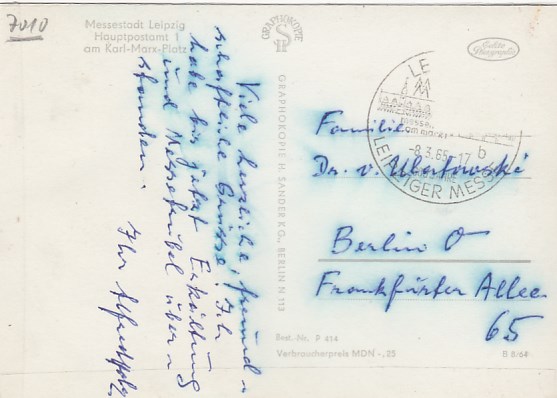 7010
Messestadt Leipzig
Hauptpostamt 1
am Karl-Marx-Platz
GRAPHOKOPIE
H S
Echte
Photographie
Viele herzliche, freund-
schaftliche Grüsse! Ich
habe bis jetzt Erkältung
und Messetrubel über-
standen.
Ihr
GRAPHOKOPIE H. SANDER KG., BERLIN N 113
LE
messe
am markt
-8.3.65-17
b
LEIPZIGER MESSE
Familie
Dr. v.
Berlin O
Frankfurter Allee
65
Best.-Nr. P 414
Verbraucherpreis MDN -,25
B 8/64